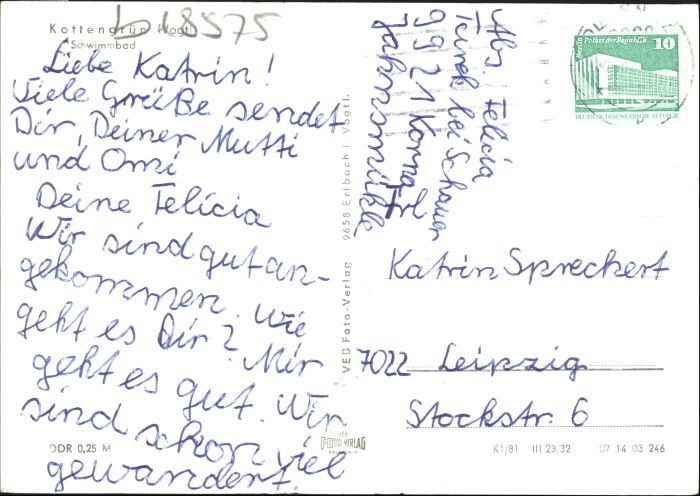 b18575
Kottengrün (Vogtl.)
Schwimmbad
Liebe Katrin!
Viele Grüße sendet
Dir, Deiner Mutti
und Omi
Deine Felicia
Wir sind gut an-
gekommen. Wie
geht es Dir? Mir
geht es gut. Wir
sind schon viel
gewandert.
DDR 0,25 M
VEB Foto-Verlag 9658 Erlbach i. Vogtl.
FOTO VERLAG
Abs Felicia
bei Schauer
9921 Korna
Jahnsmühle
Berlin, Palast der Republik 10
DEUTSCHE DEMOKRATISCHE REPUBLIK
Katrin Spreckert
7022 Leipzig
Stockstr. 6
K1/81 III 23 32 07 14 03 246